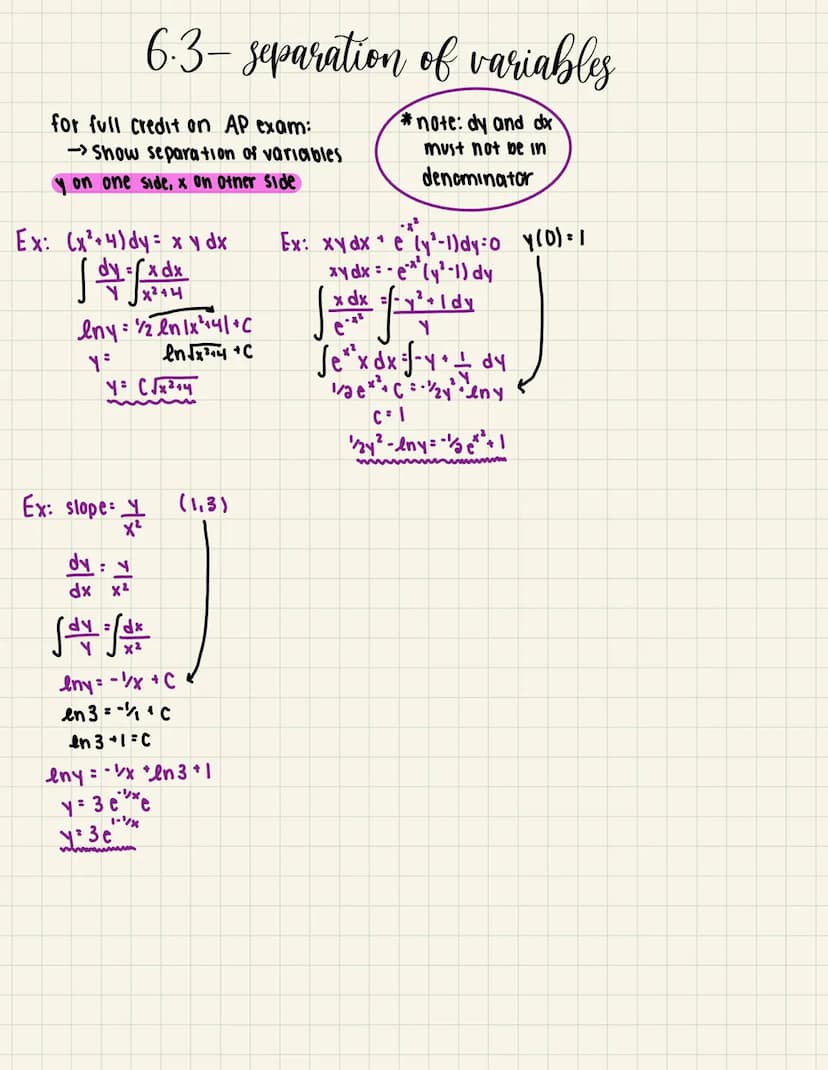 6.3- separation of variables
for full credit on AP exam:
→ Show separation of variables
y on one side, x on other side
*note: dy and dx
must not be in
denominator
Ex: (x²+4)dy = x y dx
∫ dy/y = ∫ x dx/x²+4
lny = 1/2 ln|x²+4|+C
y = ln√x²+4 +C
y = C√x²+4
Ex: xy dx + e^-x² (y²-1)dy=0 y(0)=1
xy dx = -e^-x² (y²-1) dy
∫ x dx/e^-x² = ∫ -y²+1 dy/y
∫e^x² x dx = ∫-y + 1/y dy
1/2 e^x² + C = -1/2y² + lny
C = 1
1/2y² - lny = -1/2 e^x² + 1
Ex: slope = y/x² (1,3)
dy/dx = y/x²
∫ dy/y = ∫ dx/x²
lny = -1/x + C
ln3 = -1/1 + C
ln3+1=C
lny = -1/x + ln3+1
y = 3e^-1/x e
y = 3e^1-1/x